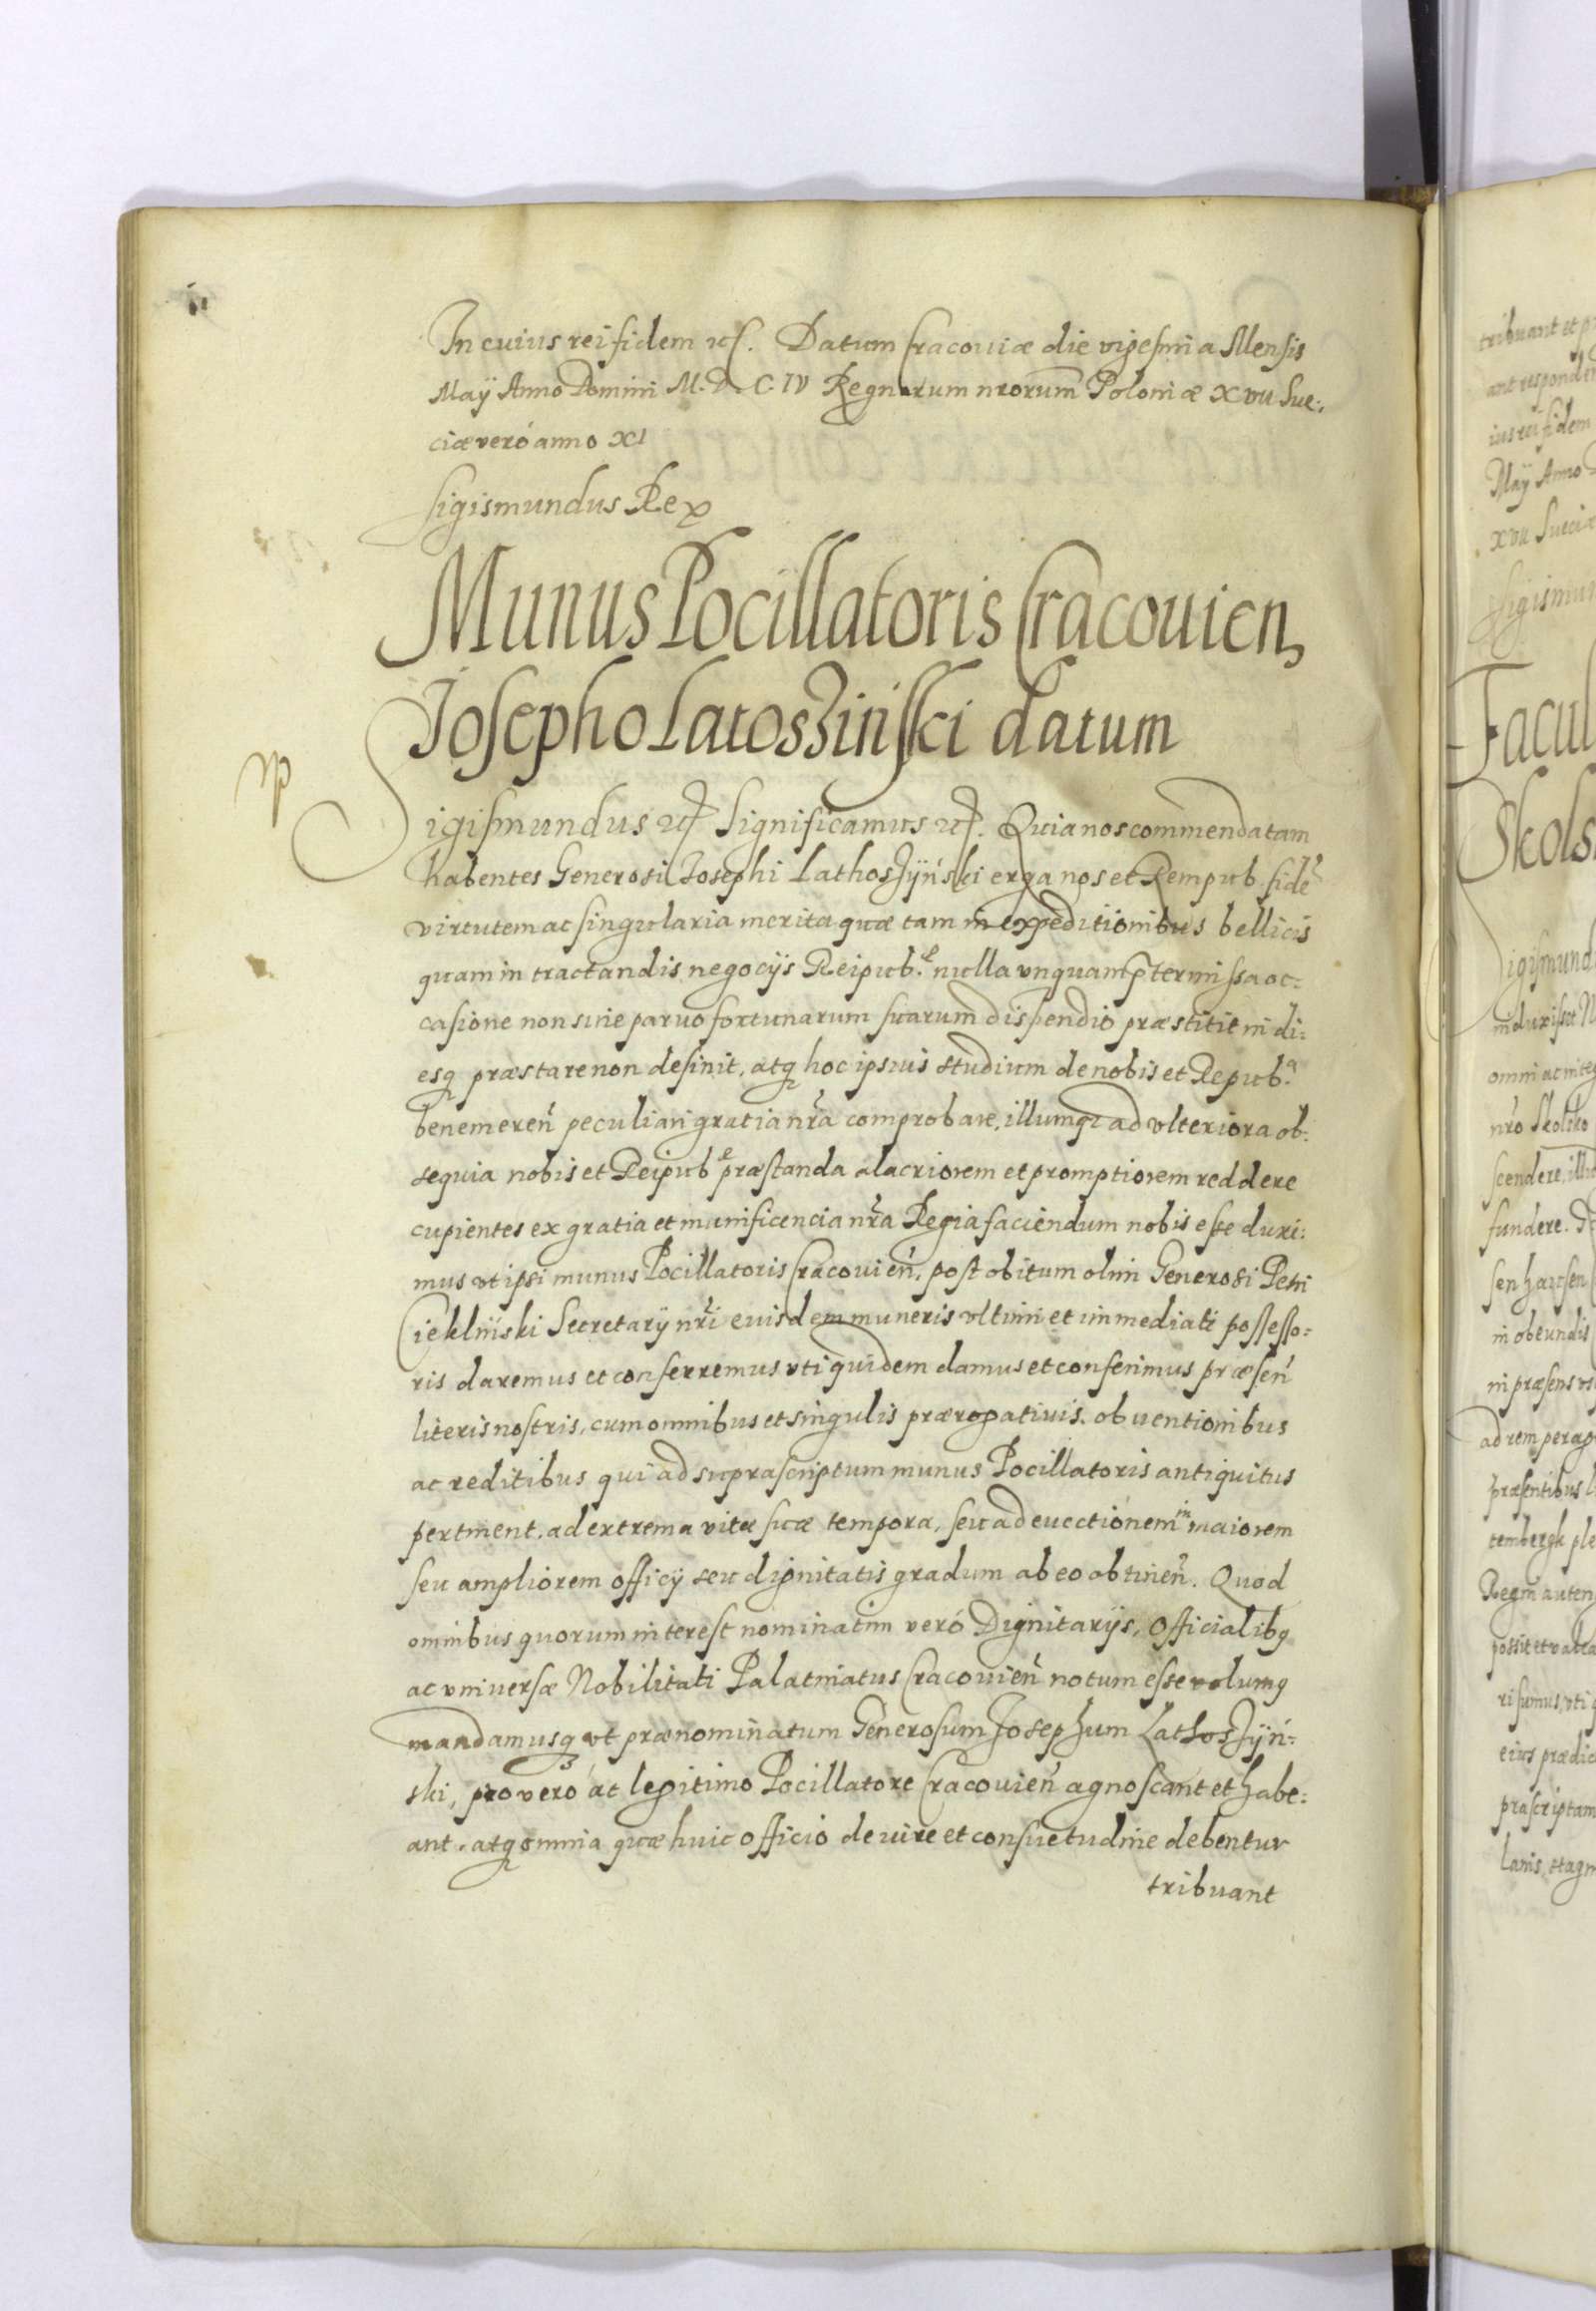 In cuius rei fidem etc. Datum Cracouiæ die vigesima Mensis
Maÿ Anno Domini M. D. C. IV Regnorum nrorum Poloniæ XVII Sue:
ciæ veró anno XI
Sigismundus Rex
Munus Pocillatoris Cracouien,
Josepho Latoszinski datum
Sigismundus etc Significamus etc. Quia nos commendatam
habentes Generosi Josephi Lathoszÿński erga nos et Rempub. fidē
virtutem ac singularia merita quæ tam in expeditionibus bellicis
quam in tractandis negocÿs Reipub.e nulla vnquam p̄termissa oc:
casione non sine paruo fortunarum suarum dispendio præstitit in di:
esq præstare non desinit, atq hoc ipsius studium de nobis et Repub.a
benemereñ peculiari gratia nr̃a comprobare, illumq ad vlteriora ob:
sequia nobis et Reipub e præstanda alacriorem et promptiorem reddere
cupientes ex gratia et munificencia nr̃a Regia faciendum nobis esse duxi:
mus vt ipsi munus Pocillatoris Cracouieñ, post obitum olim Generosi Petri
Ciekliński Secretarÿ nr̃i euisdem muneris vltimi et immediati possesso:
ris daremus et conferremus vti quidem damus et conferimus præseñ
literis nostris, cum omnibus et singulis prærogatiuis. obuentionibus
ac reditibus qui ad suprascriptum munus Pocillatoris antiquitus
pertinent, ad extrema vitæ suæ tempora, seu ad euectionem in maiorem
seu ampliorem officÿ seu dignitatis gradum ab eo obtineñ. Quod
omnibus quorum interest nominatim veró Dignitarÿs, Officialibq
ac vniuersæ Nobilitati Palatinatus Cracouieñ notum esse volumq
mandamusq vt prænominatum Generosum Josephum Lathoszÿń:
ski, pro veró ac legitimo Pocillatore Cracouieñ agnoscant et habe:
ant, atq omnia quæ huic officio de iure et consuetudine debentur
tribuant